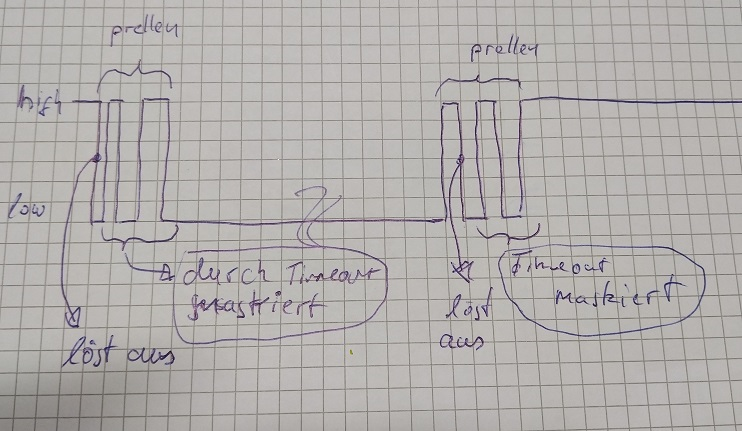 prellen
prellen
high
low
durch Timeout
maskiert
löst aus
löst
aus
Timeout
maskiert